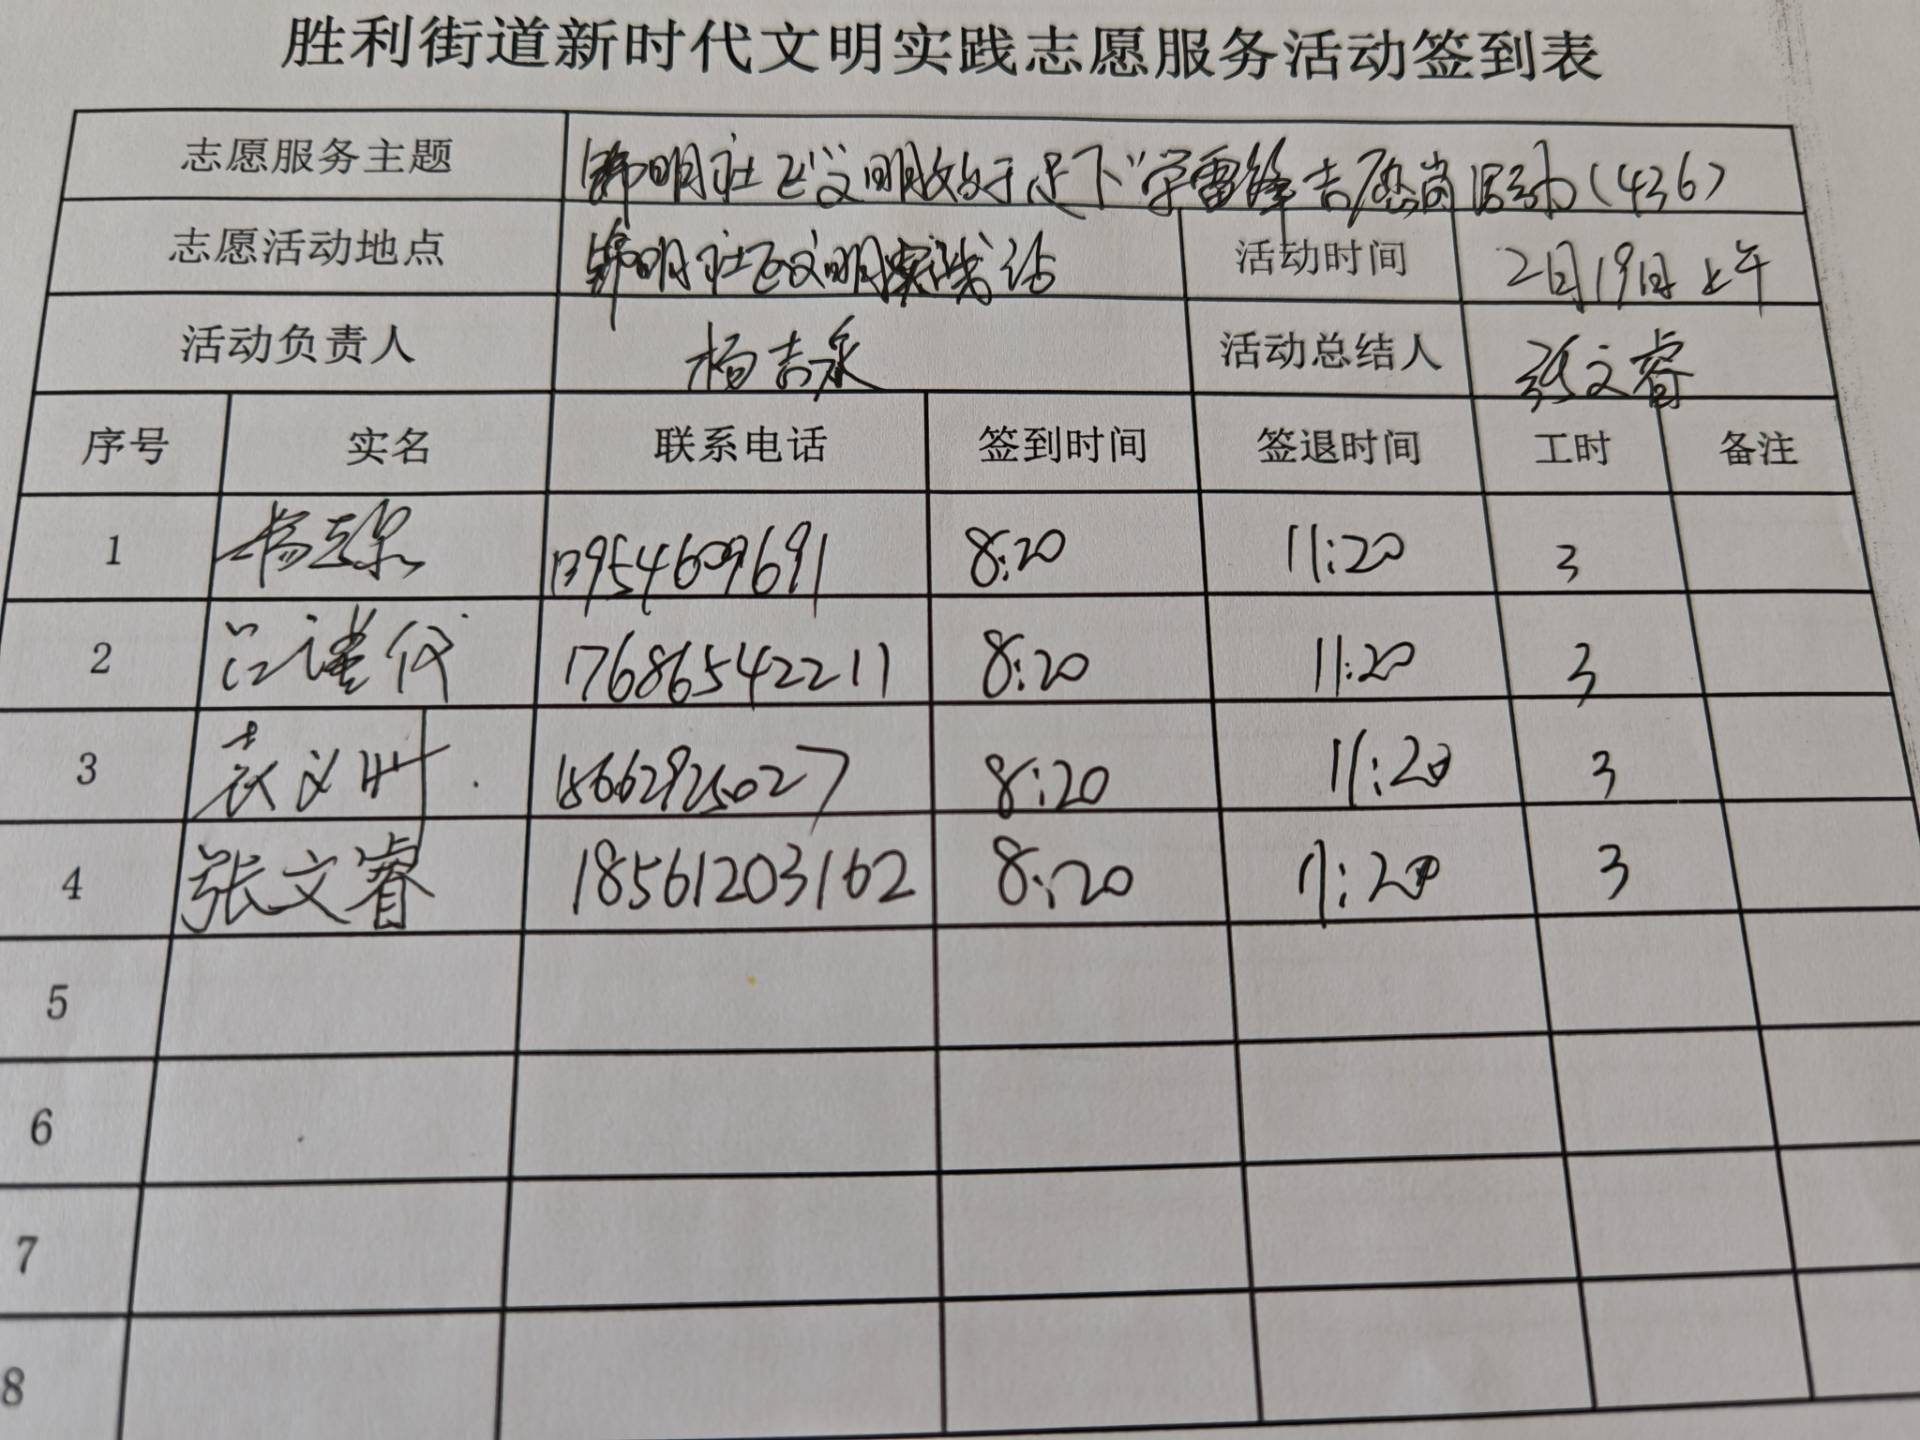 胜利街道新时代文明实践志愿服务活动签到表
志愿服务主题 锦明社区“文明始于足下”学雷锋志愿岗活动(436)
志愿活动地点 锦明社区文明实践站 活动时间 2月19日上午
活动负责人 杨志泉 活动总结人 张文睿
序号 实名 联系电话 签到时间 签退时间 工时 备注
1 8:20 11:20 3
2 17686542211 8:20 11:20 3
3 8:20 11:20 3
4 张文睿 18561203162 8:20 11:20 3
5
6
7
8